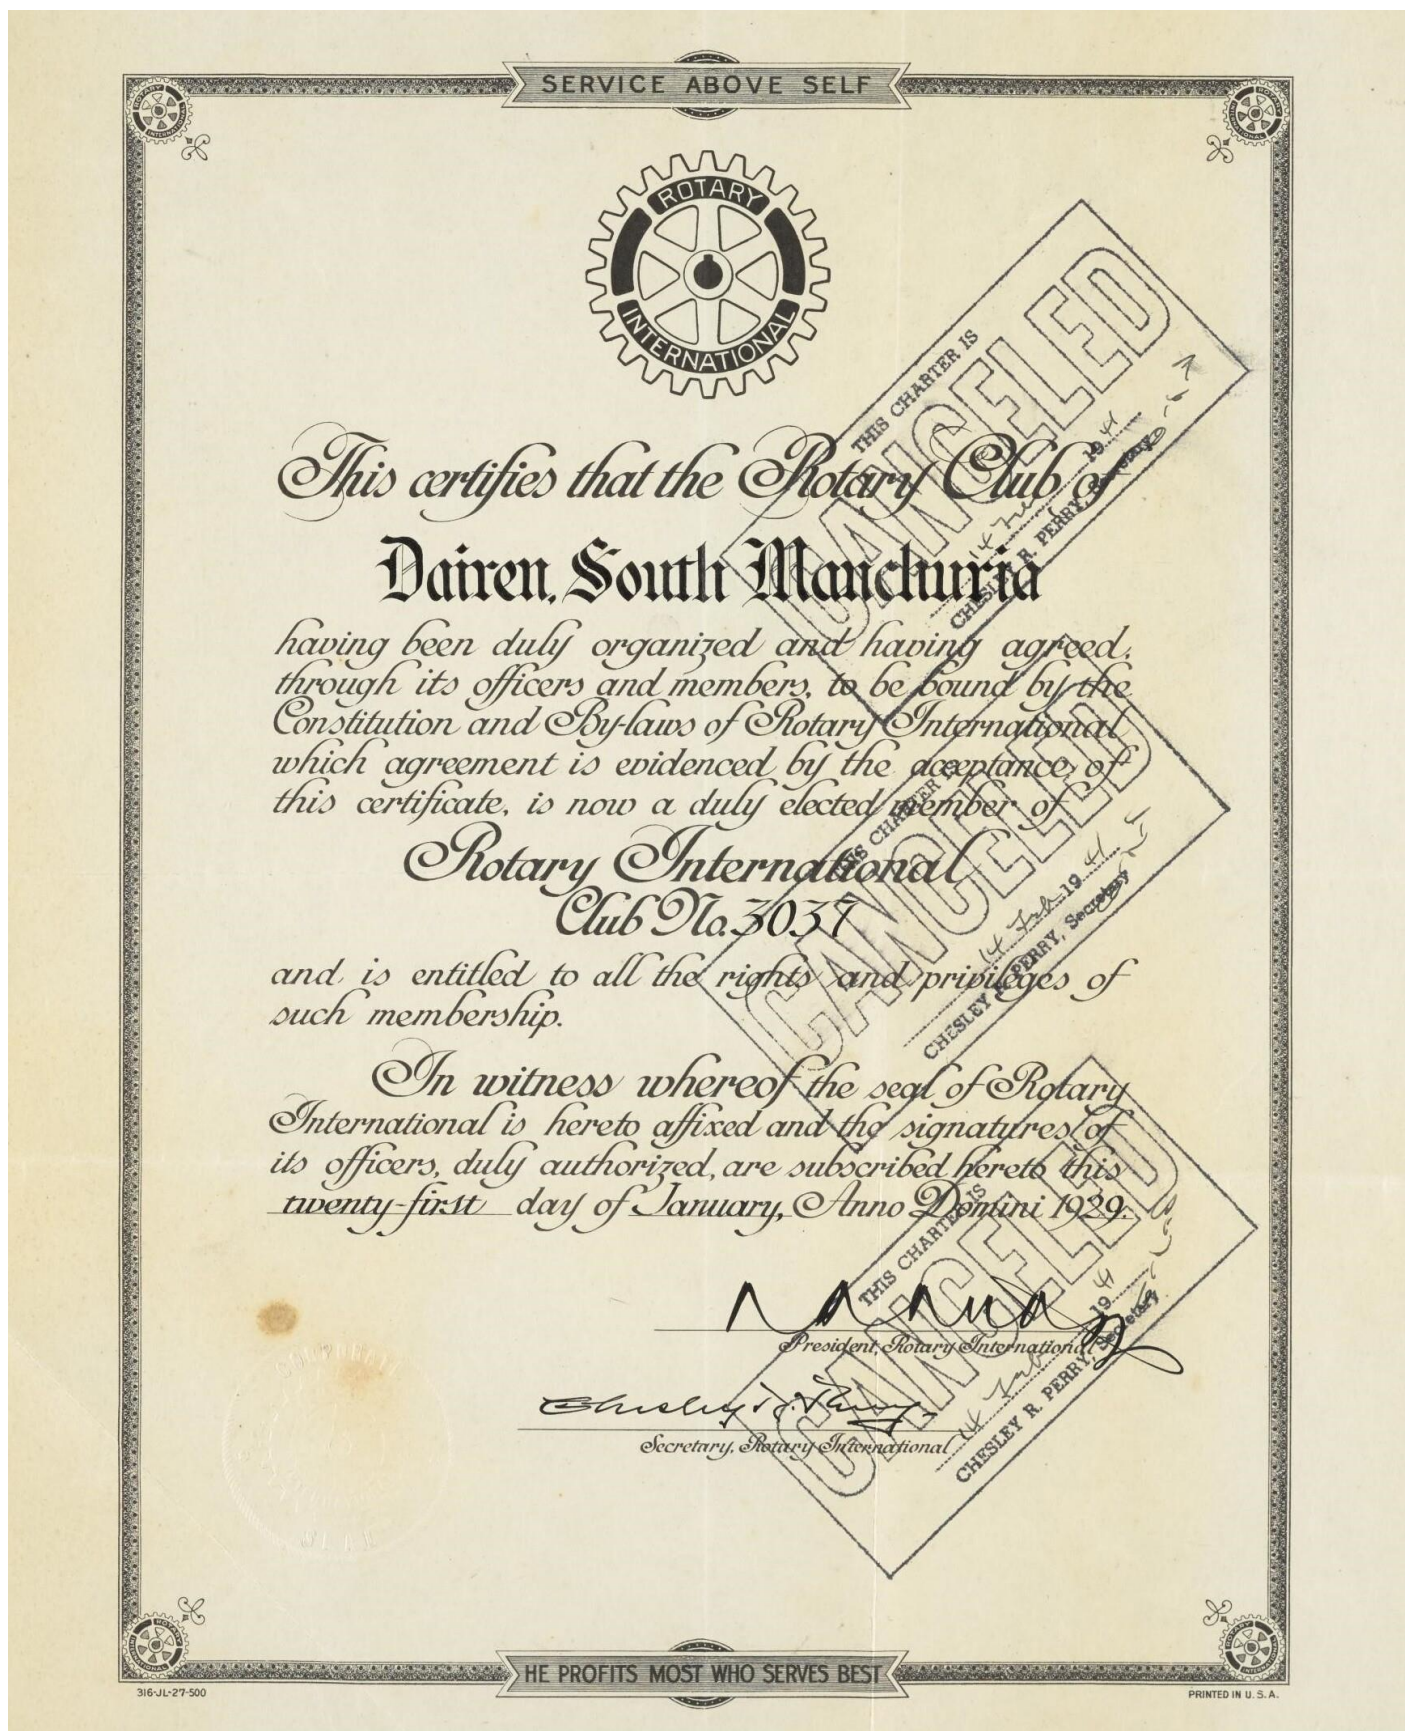 SERVICE ABOVE SELF
ROTARY
INTERNATIONAL
This certifies that the Rotary Club of
Dairen, South Manchuria
having been duly organized and having agreed,
through its officers and members, to be bound by the
Constitution and By-laws of Rotary International
which agreement is evidenced by the acceptance of
this certificate, is now a duly elected member of
Rotary International
Club No. 3037
and is entitled to all the rights and privileges of
such membership.
In witness whereof the seal of Rotary
International is hereto affixed and the signatures of
its officers, duly authorized, are subscribed hereto this
twenty-first day of January, Anno Domini 1929.
President, Rotary International
Chesley R. Perry
Secretary, Rotary International
THIS CHARTER IS
CANCELED
14 Feb 1941
CHESLEY R. PERRY, Secretary
THIS CHARTER IS
CANCELED
14 Feb 1941
CHESLEY R. PERRY, Secretary
THIS CHARTER IS
CANCELED
14 Feb 1941
CHESLEY R. PERRY, Secretary
HE PROFITS MOST WHO SERVES BEST
316-JL-27-500
PRINTED IN U.S.A.